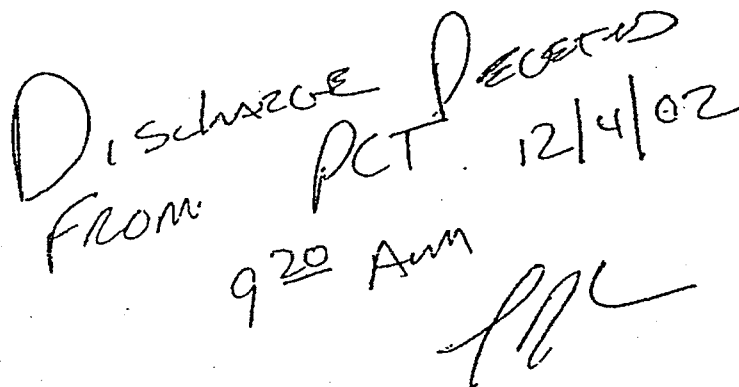 DISCHARGE DELETED
FROM PCT. 12/4/02
9 20 AM